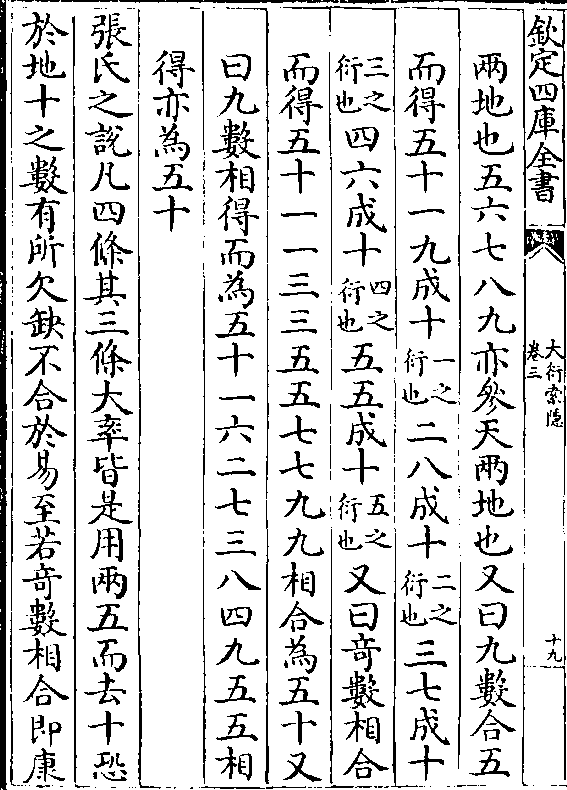 欽定四庫全書
大衍索隱
卷三
十九
兩地也五六七八九亦參天兩地也又曰九數合五
而得五十一九成十一之衍也二八成十二之衍也三七成十
三之衍也四六成十四之衍也五五成十五之衍也又曰奇數相合
而得五十一一三三五五七七九九相合為五十又
曰九數相得而為五十一六二七三八四九五五相
得亦為五十
張氏之說凡四條其三條大率皆是用兩五而去十恐
於地十之數有所欠缺不合於易至若奇數相合即康